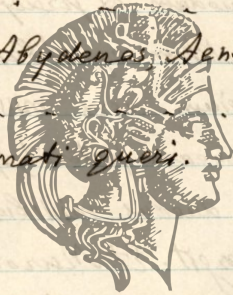 Abydenos, Aen
mati queri.